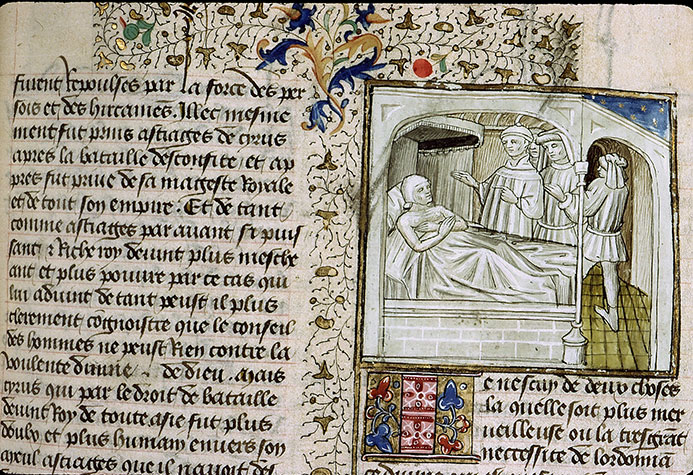 furent Repoulses par la force des per
sois et des hircanies. Illec mesme
ment fut prins astiages de cyrus
apres la bataille desconfite, et ap
pres fut prive de sa mageste Royale
et de tout son empire: Et de tant
comme astiages par avant si puis
sant & Riche roy devint plus mesche
ant et plus pouvre par ce cas qui
lui advint de tant peust il plus
clerement congnoistre que le conseil
des hommes ne peust Rien contre la
poulente divine de dieu. Mais
cyrus qui par le droit de bataille
devint Roy de toute asie fut plus
doulx et plus humain envers son
ayeul astiages que il navoit des
e ne scay de deux choses
la quelle soit plus mer
veilleuse ou la tresgrat
neccessite de lordonna